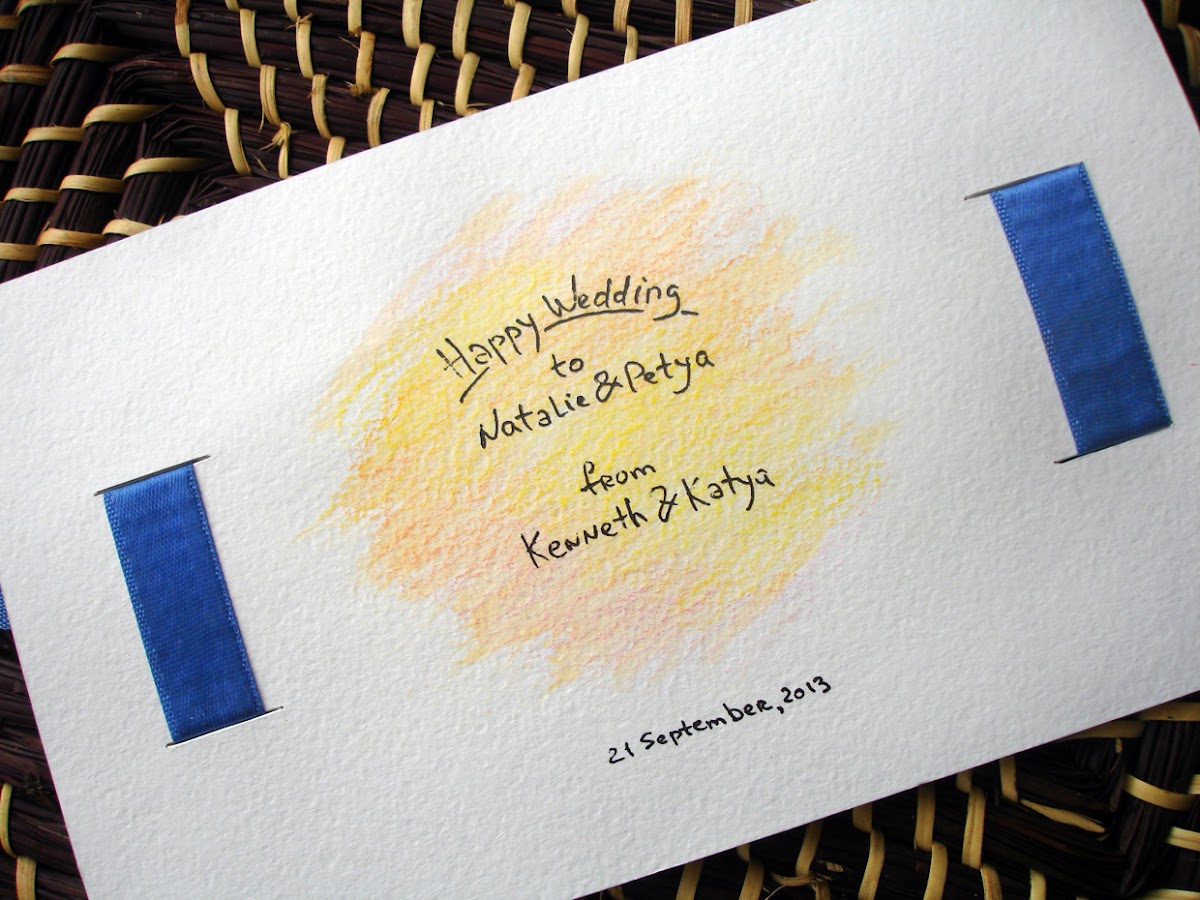 Happy Wedding
to
Natalie & Petya
from
Kenneth & Katya
21 September, 2013